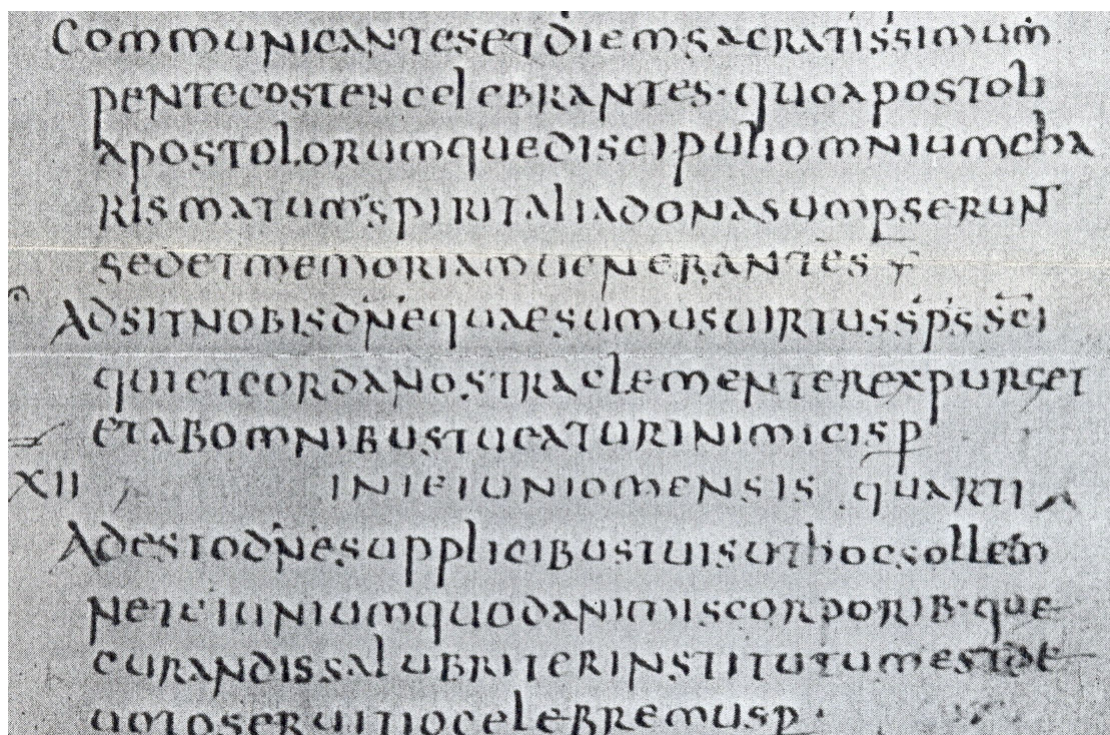 Communicantes et diem sacratissimum
pentecosten celebrantes · quo apostoli
apostolorumque discipuli omnium cha
rismatum spiritalia dona sumpserunt
sed et memoriam uenerantes
Adsit nobis dne quaesumus uirtus sps sci
qui et corda nostra clementer expurget
et ab omnibus tueatur inimicis p
XII IN IEIUNIO MENSIS QUARTI
Adesto dne supplicibus tuis ut hoc sollem
ne ieiunium quod animis corporib· que
curandis salubriter institutum est de
uoto seruitio celebremus p ·